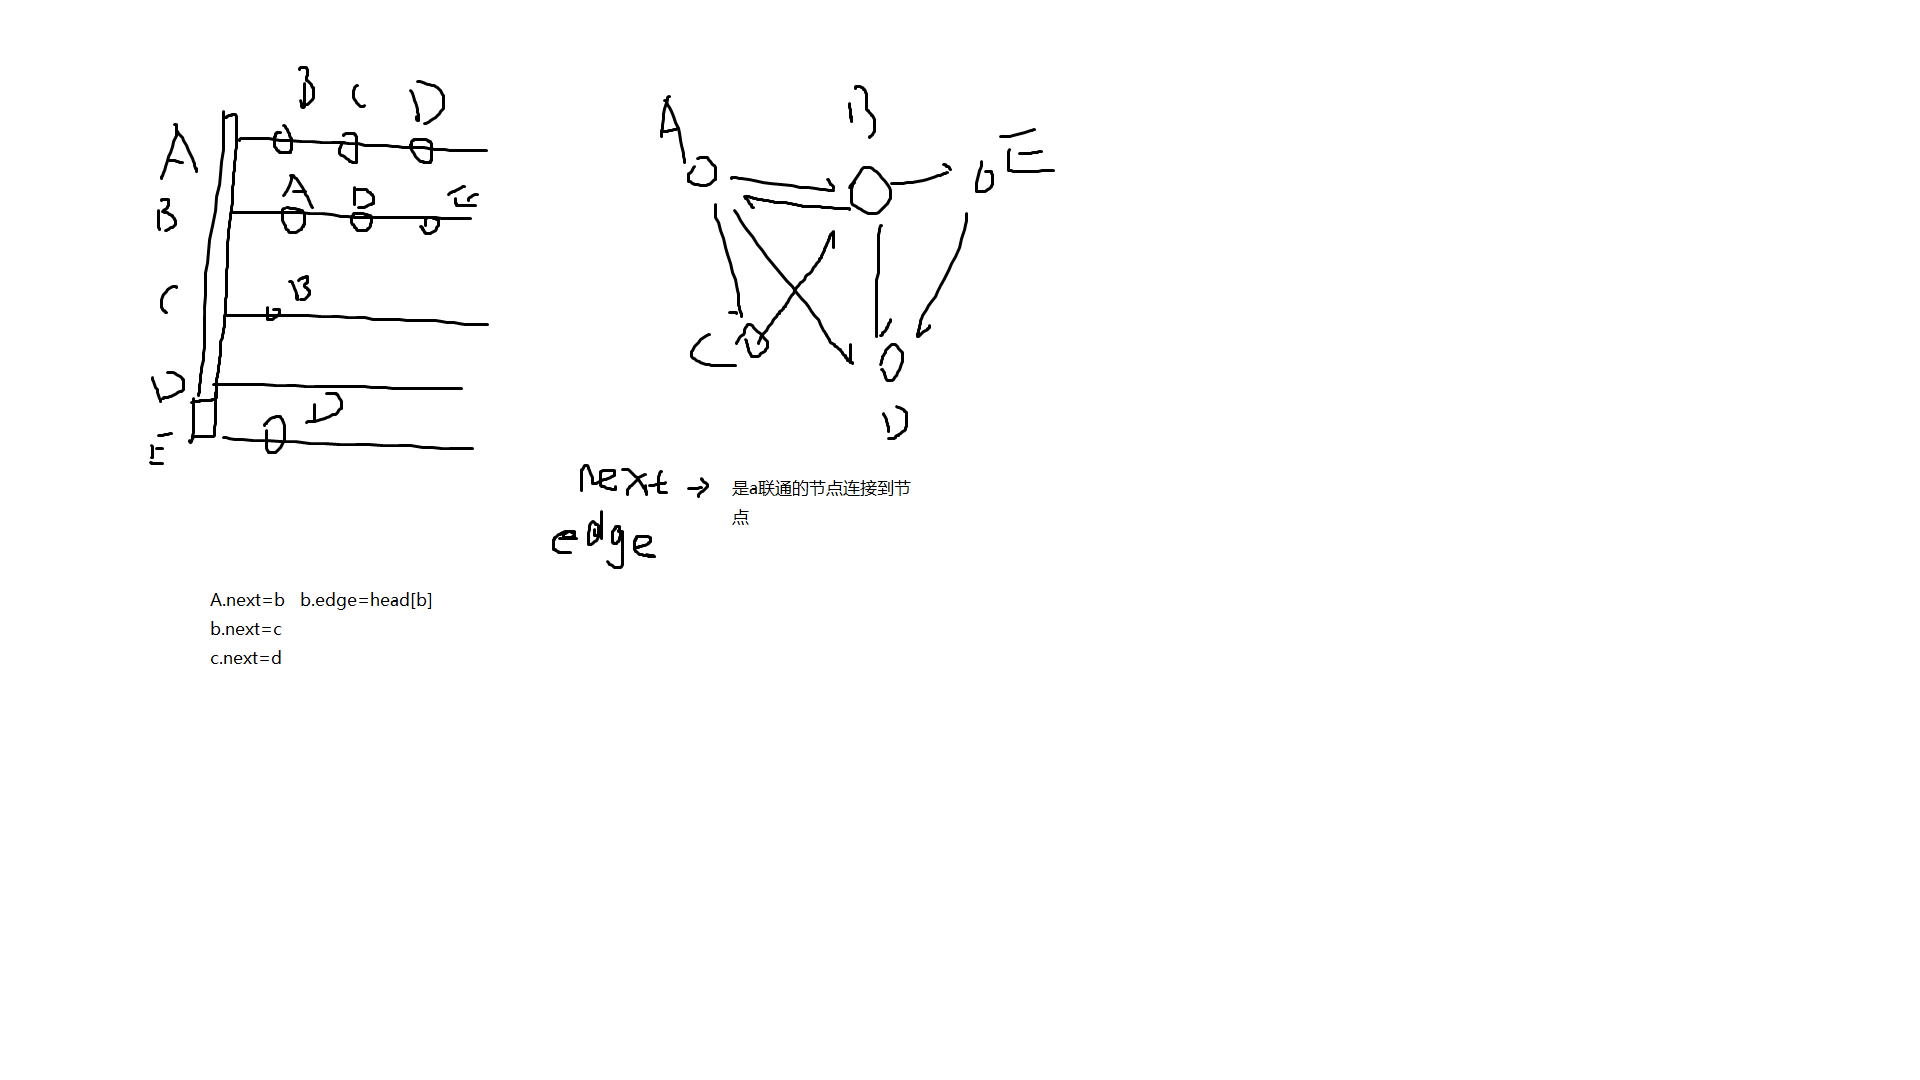 B C D
A
A D E
B
B
C
D
D
E
A B E
C
D
next → 是a联通的节点连接到节
点
edge
A.next=b b.edge=head[b]
b.next=c
c.next=d